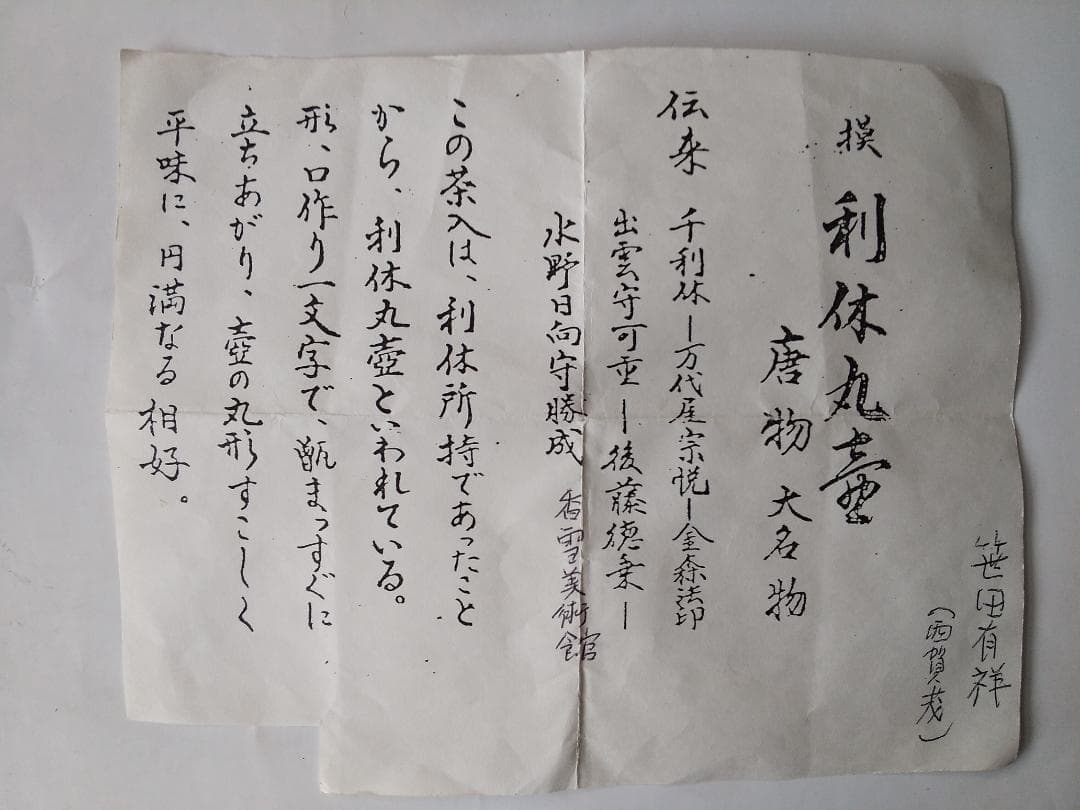 笹田有祥
(西賀茂)
摸 利休丸壷
唐物 大名物
伝来 千利休ー万代屋宗悦ー金森法印
出雲守可重ー後藤徳乗ー
水野日向守勝成 香雪美術館
この茶入は、利休所持であったこと
から、利休丸壷といわれている。
形、口作り一文字で、甑まっすぐに
立ちあがり、壷の丸形すこしく
平味に、円満なる相好。